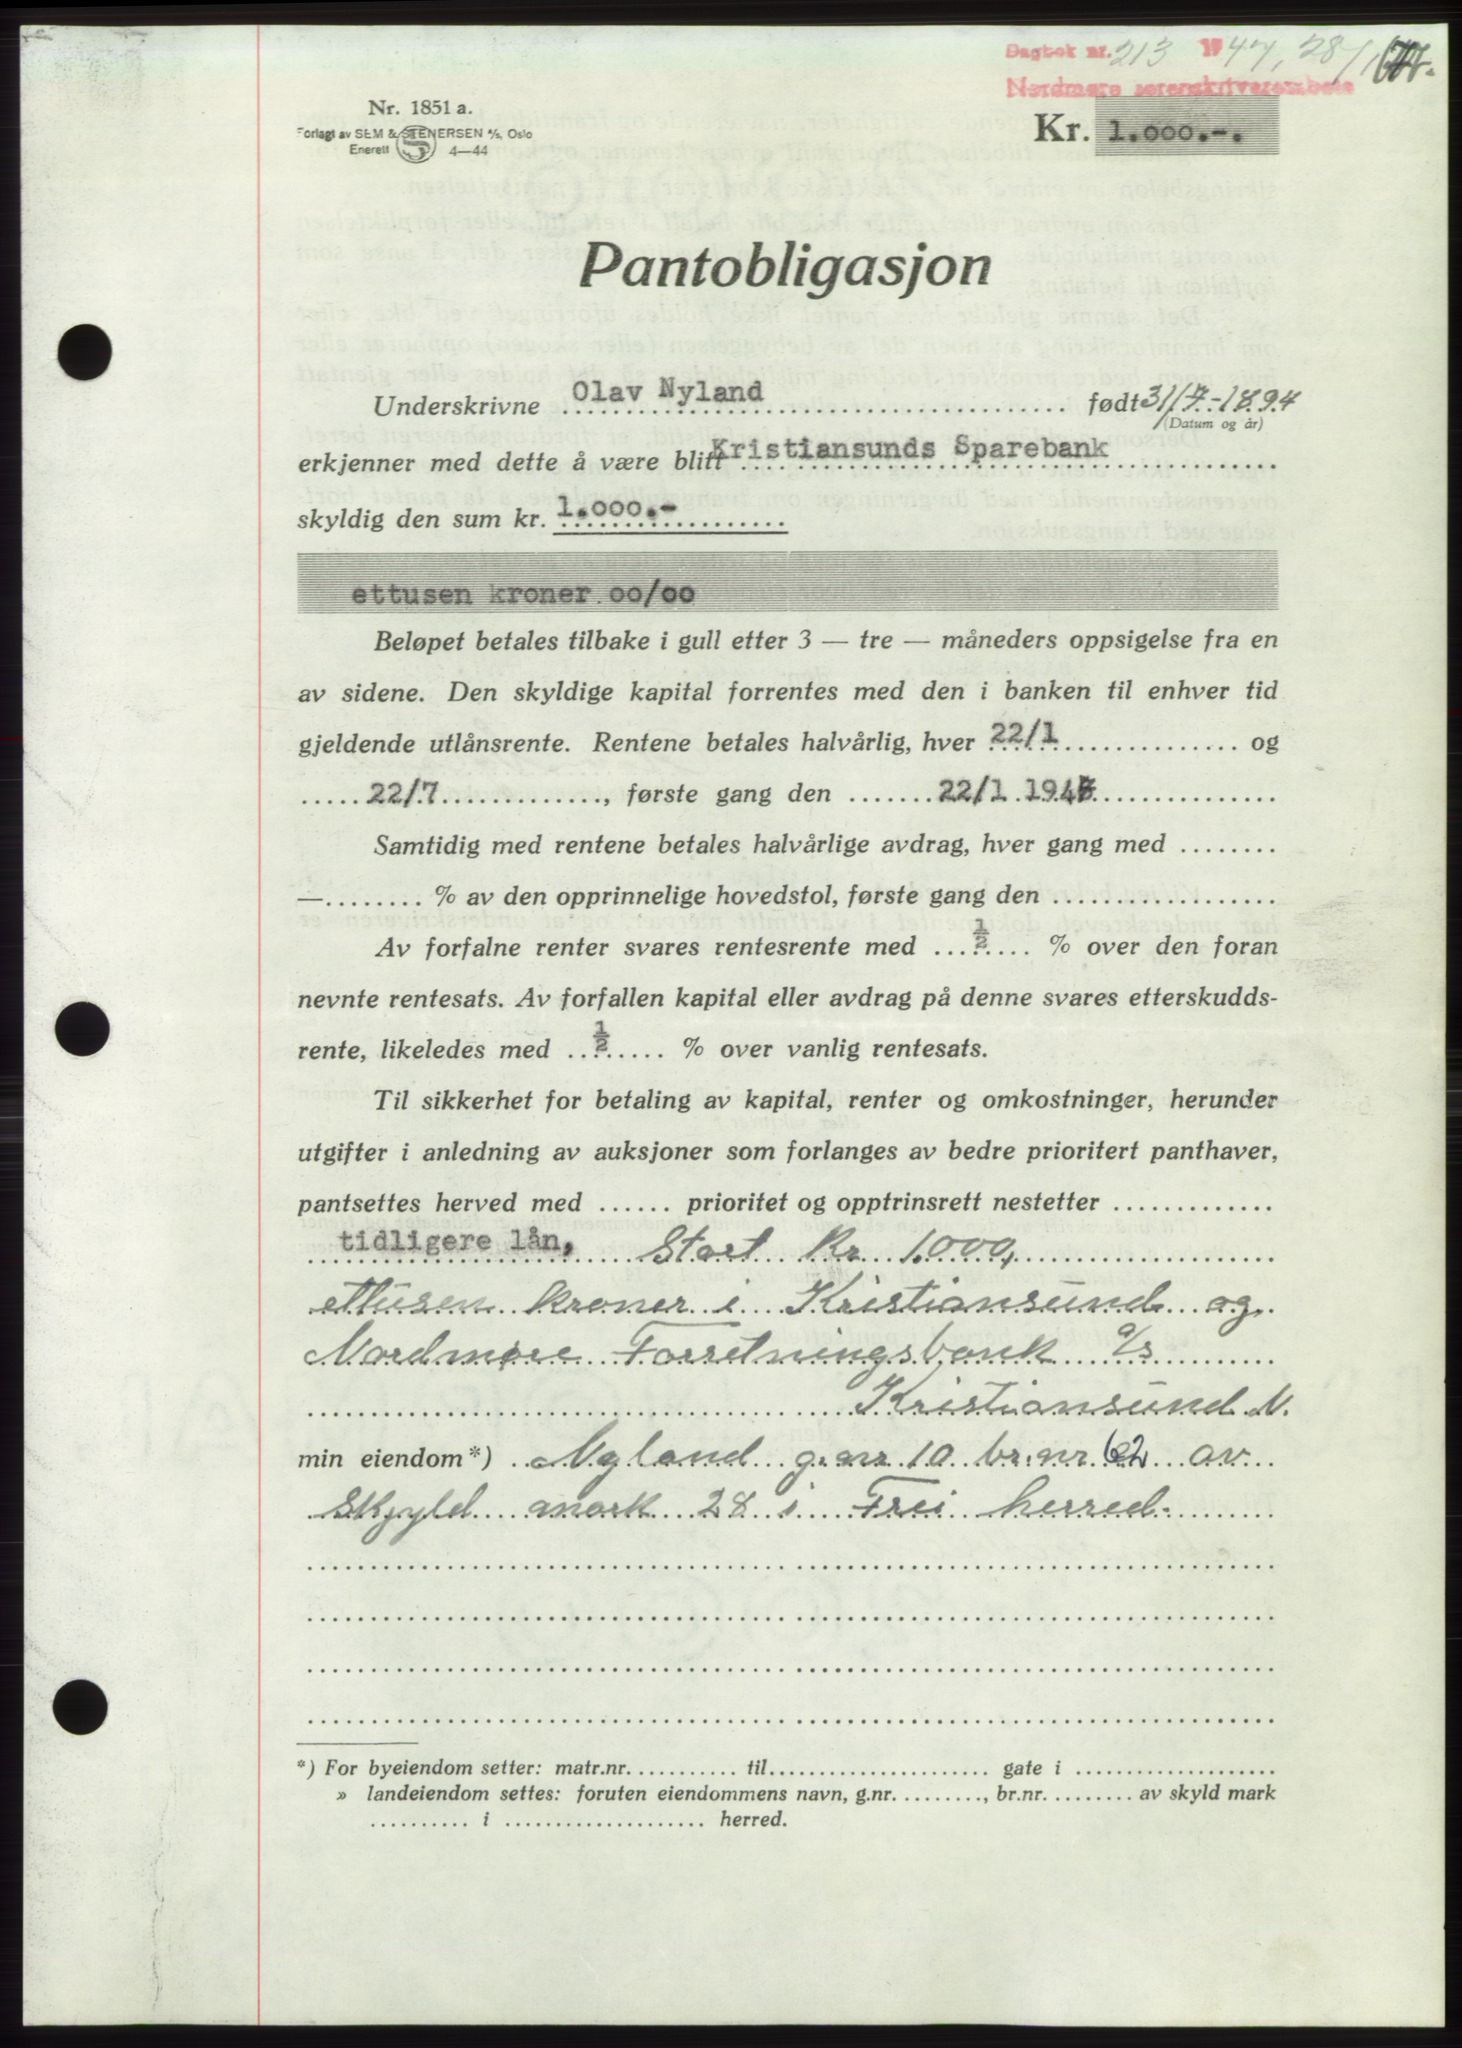 Dagbok nr. 213 1947, 28/1
Nordmøre sorenskriverembete
Nr. 1851 a.
Forlagt av SEM & STENERSEN A/S, Oslo
Enerett S 4—44
Kr. 1.000.-.
Pantobligasjon
Underskrivne Olav Nyland født 31/7.-1894
(Datum og år)
erkjenner med dette å være blitt Kristiansunds Sparebank
skyldig den sum kr. 1.000.-
ettusen kroner 00/00
Beløpet betales tilbake i gull etter 3 — tre — måneders oppsigelse fra en
av sidene. Den skyldige kapital forrentes med den i banken til enhver tid
gjeldende utlånsrente. Rentene betales halvårlig, hver 22/1 og
22/7, første gang den 22/1 1947
Samtidig med rentene betales halvårlige avdrag, hver gang med ........
—........ % av den opprinnelige hovedstol, første gang den ...................
Av forfalne renter svares rentesrente med ½ % over den foran
nevnte rentesats. Av forfallen kapital eller avdrag på denne svares etterskudds-
rente, likeledes med ½ % over vanlig rentesats.
Til sikkerhet for betaling av kapital, renter og omkostninger, herunder
utgifter i anledning av auksjoner som forlanges av bedre prioritert panthaver,
pantsettes herved med ...... prioritet og opptrinsrett nestetter .............
tidligere lån, Stort Kr 1.000,
ettusen kroner i Kristiansund og
Nordmøre Forretningsbank a/s
Kristiansund N.
min eiendom*) Nyland g.nr. 10 br.nr. 62 av
Skyld mark 28 i Frei herred.
*) For byeiendom setter: matr.nr. ........... til ...................... gate i ....................
» landeiendom settes: foruten eiendommens navn, g.nr. ........., br.nr. ......... av skyld mark
.......... i .................... herred.